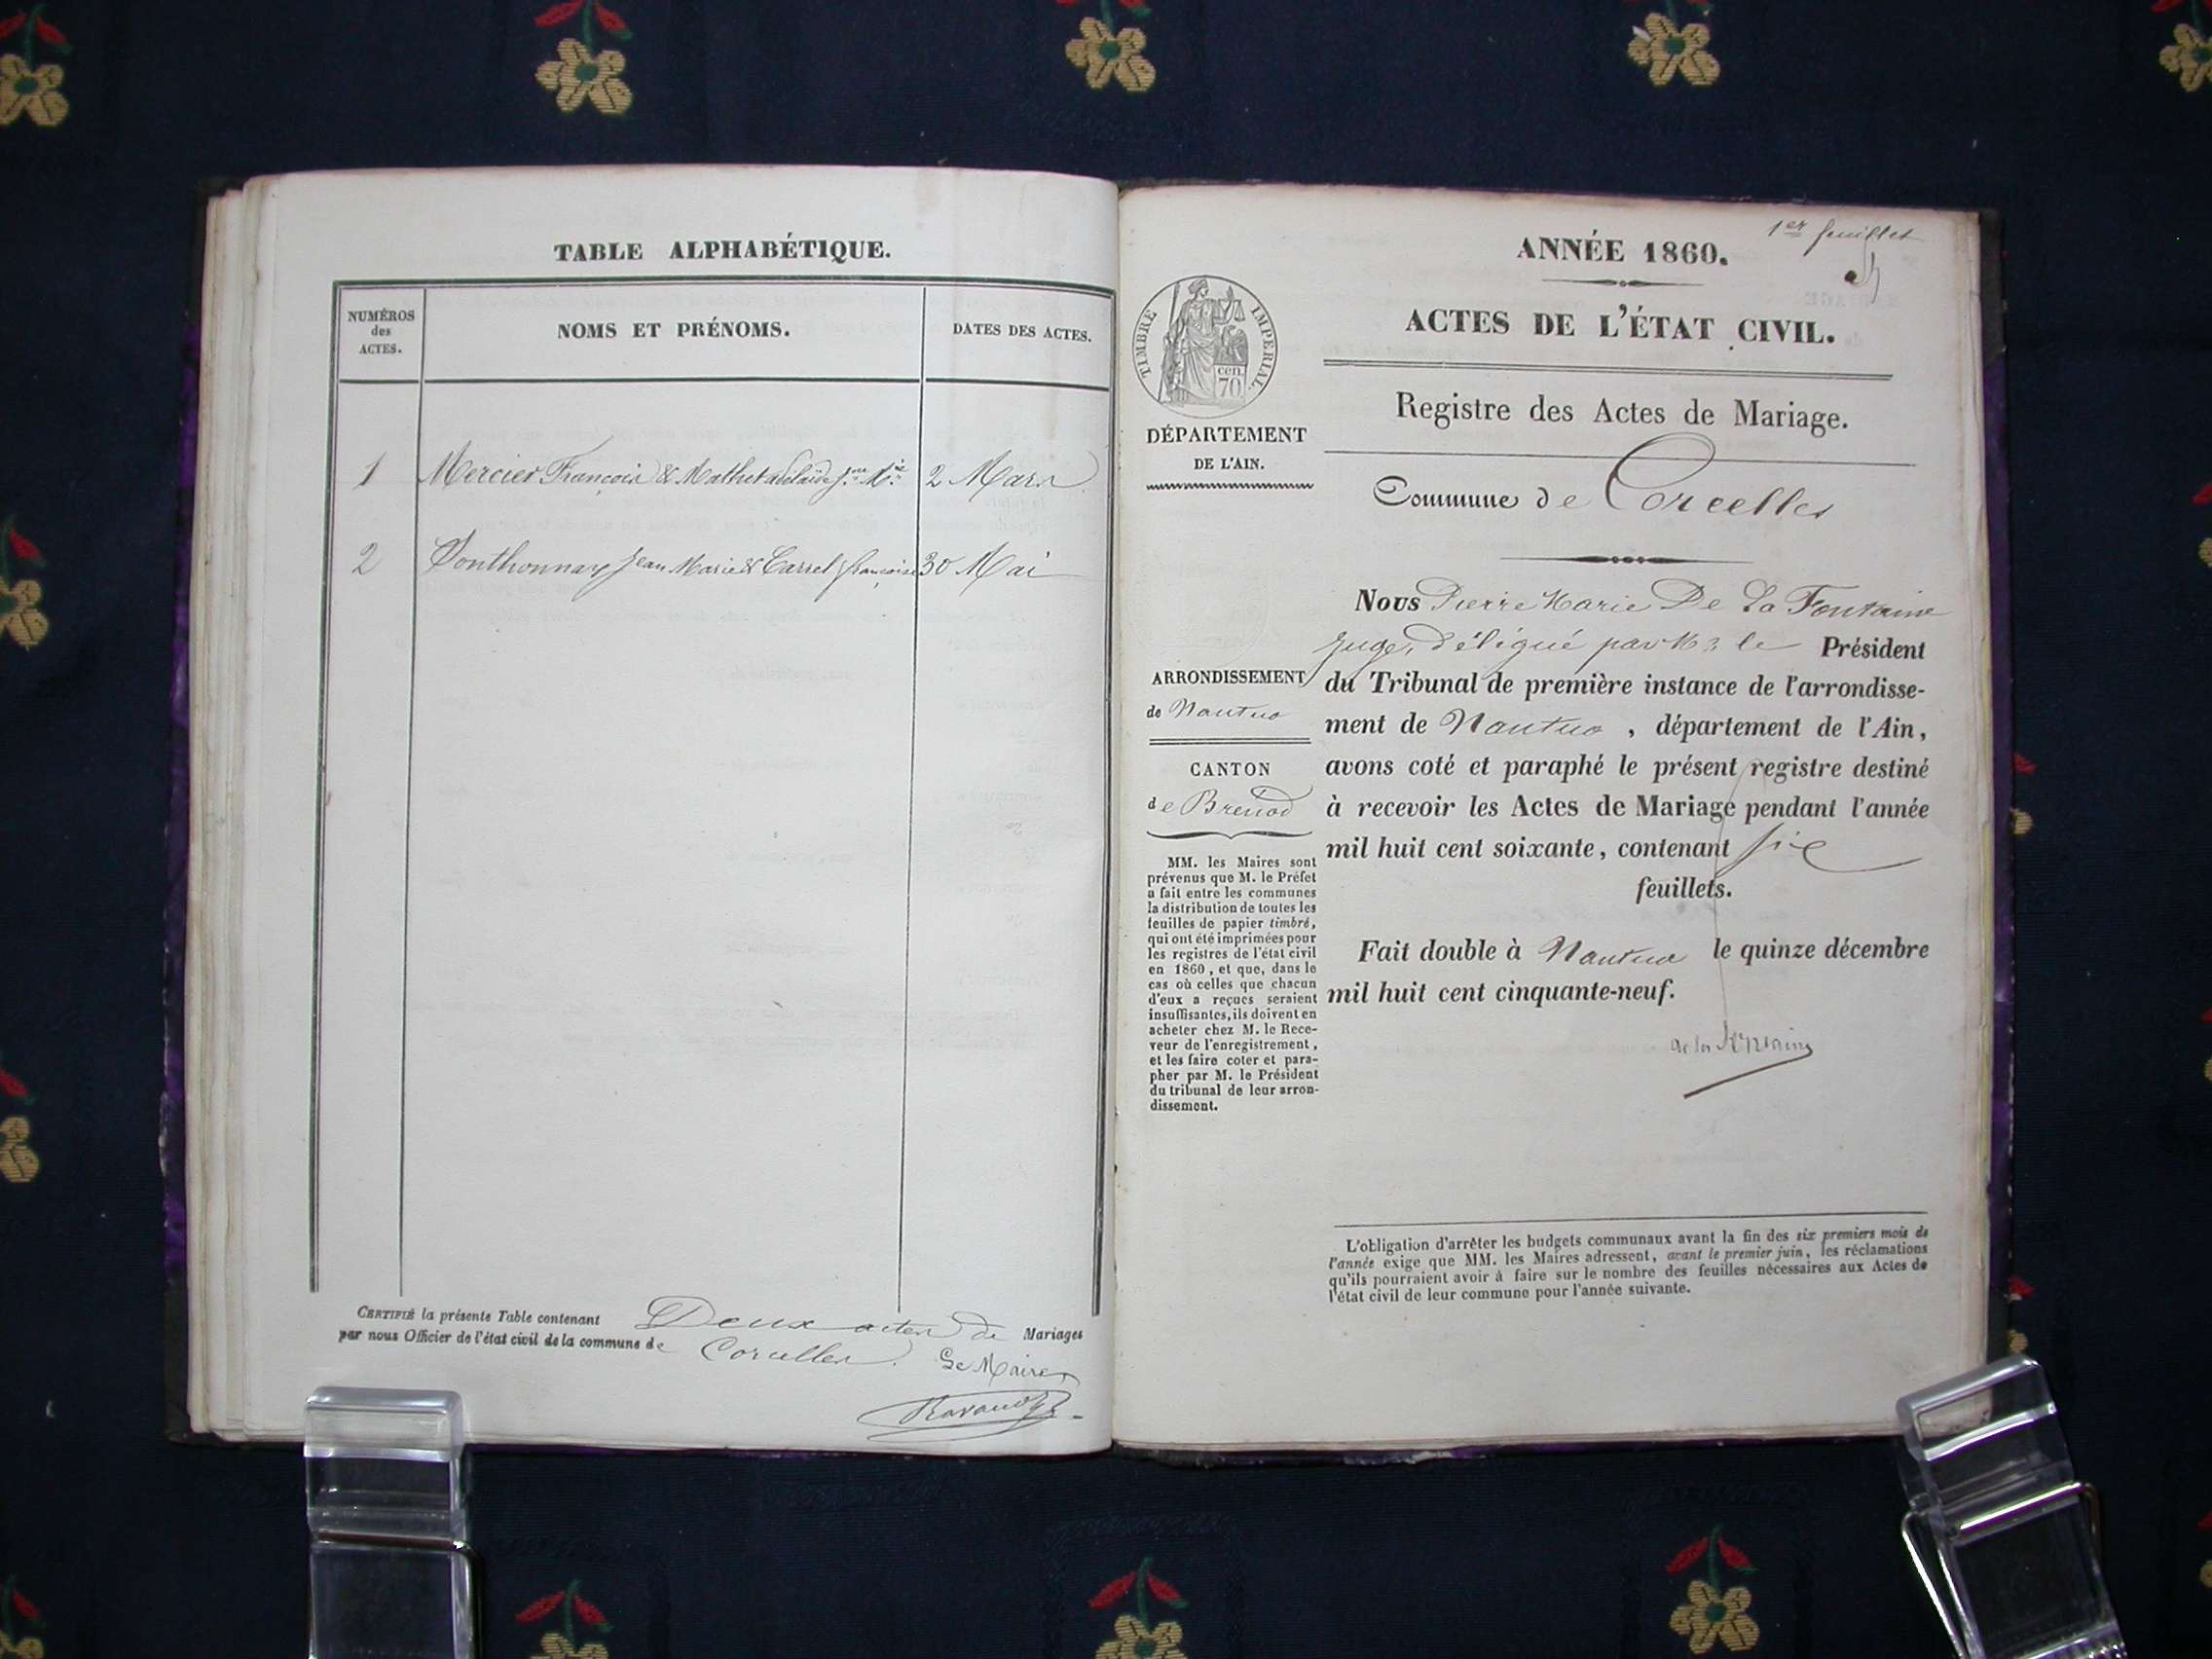 TABLE ALPHABÉTIQUE.
NUMÉROS
des
ACTES.
NOMS ET PRÉNOMS.
DATES DES ACTES.
1 Mercier François & Mathet adélaïde 2 Mars
2 Ponthonnay Jean Marie & Carrel françoise 30 Mai
CERTIFIÉ la présente Table contenant Deux actes de Mariages
par nous Officier de l'état civil de la commune de Corcelles.
Le Maire
1er feuillet
ANNÉE 1860.
ACTES DE L'ÉTAT CIVIL.
TIMBRE IMPERIAL
cen.
70
DÉPARTEMENT
DE L'AIN.
Registre des Actes de Mariage.
Commune de Corcelles
Nous Pierre Marie De La Fontaine
Juge, délégué par Mr le Président
du Tribunal de première instance de l'arrondisse-
ment de Nantua, département de l'Ain,
avons coté et paraphé le présent registre destiné
à recevoir les Actes de Mariage pendant l'année
mil huit cent soixante, contenant six
feuillets.
Fait double à Nantua le quinze décembre
mil huit cent cinquante-neuf.
ARRONDISSEMENT
de Nantua
CANTON
de Brenod
MM. les Maires sont
prévenus que M. le Préfet
a fait entre les communes
la distribution de toutes les
feuilles de papier timbré,
qui ont été imprimées pour
les registres de l'état civil
en 1860, et que, dans le
cas où celles que chacun
d'eux a reçues seraient
insuffisantes, ils doivent en
acheter chez M. le Rece-
veur de l'enregistrement,
et les faire coter et para-
pher par M. le Président
du tribunal de leur arron-
dissement.
L'obligation d'arrêter les budgets communaux avant la fin des six premiers mois de
l'année exige que MM. les Maires adressent, avant le premier juin, les réclamations
qu'ils pourraient avoir à faire sur le nombre des feuilles nécessaires aux Actes de
l'état civil de leur commune pour l'année suivante.